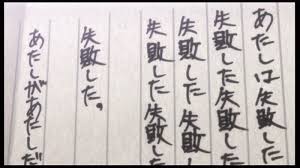 あたしは失敗した
失敗した失敗した
失敗した失敗
失敗した失敗
失敗した。
あたしがあたしだ